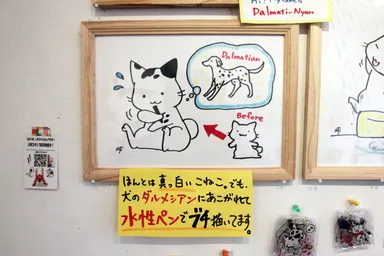 Dalmati-Nyan
Dalmatian
Before
ほんとは真っ白いこねこ。でも、
犬のダルメシアンにあこがれて
水性ペンでブチ描いてます。